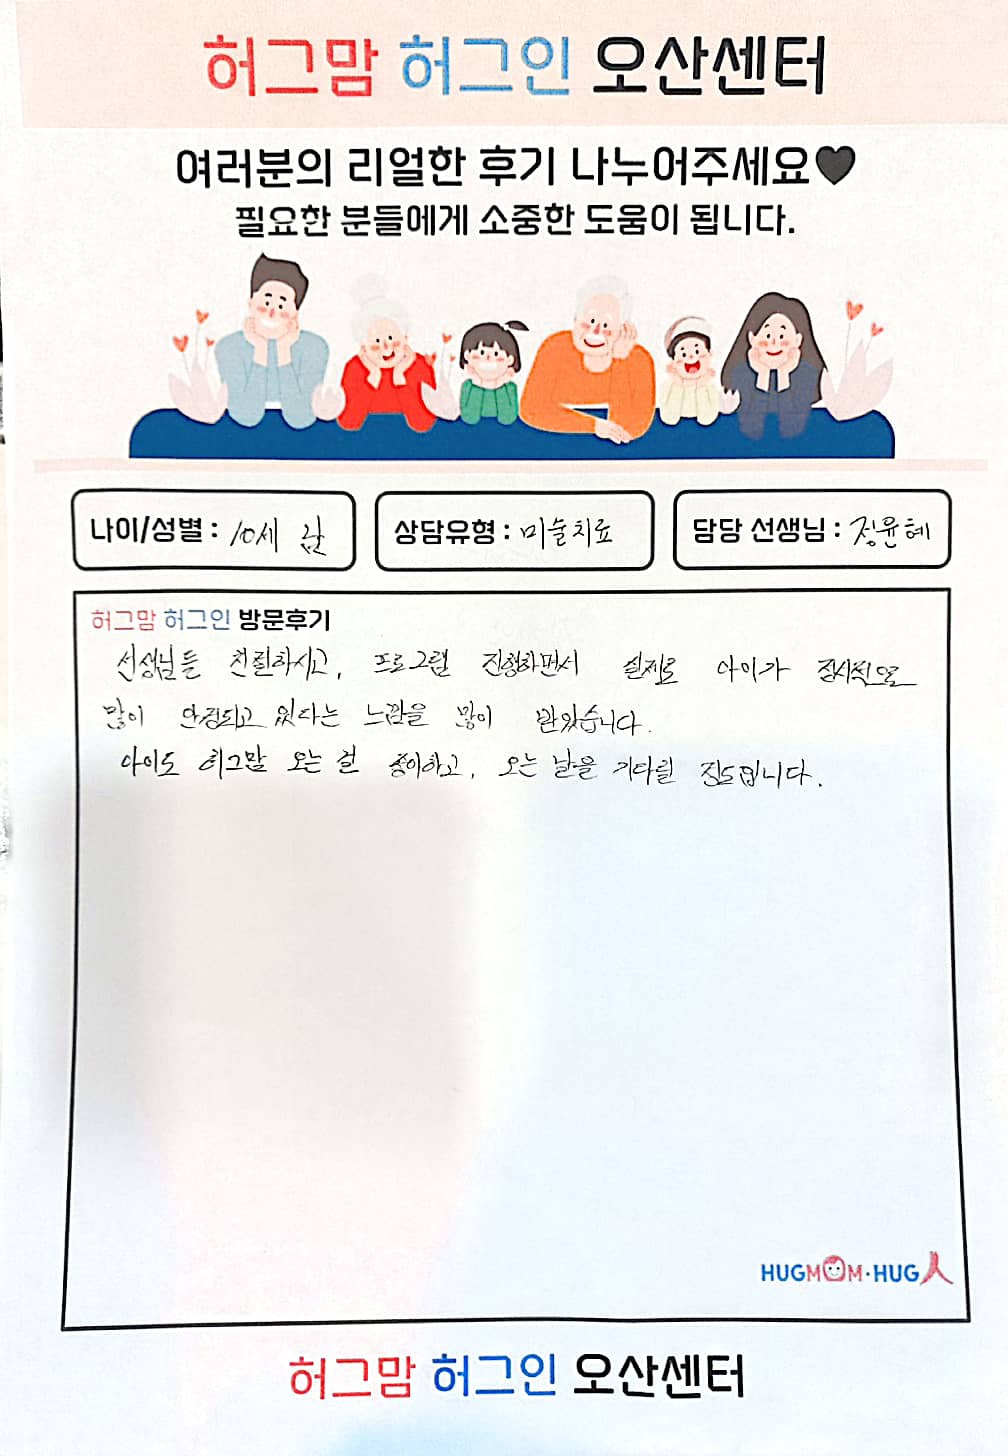 허그맘 허그인 오산센터
여러분의 리얼한 후기 나누어주세요♥
필요한 분들에게 소중한 도움이 됩니다.
나이/성별 : 10세 남
상담유형 : 미술치료
담당 선생님 : 정윤혜
허그맘 허그인 방문후기
선생님들 친절하시고, 프로그램 진행하면서 실제로 아이가 정서적으로
많이 안정되고 있다는 느낌을 많이 받았습니다.
아이도 허그맘 오는 걸 좋아하고, 오는 날을 기다릴 정도입니다.
HUGMOM·HUG人
허그맘 허그인 오산센터